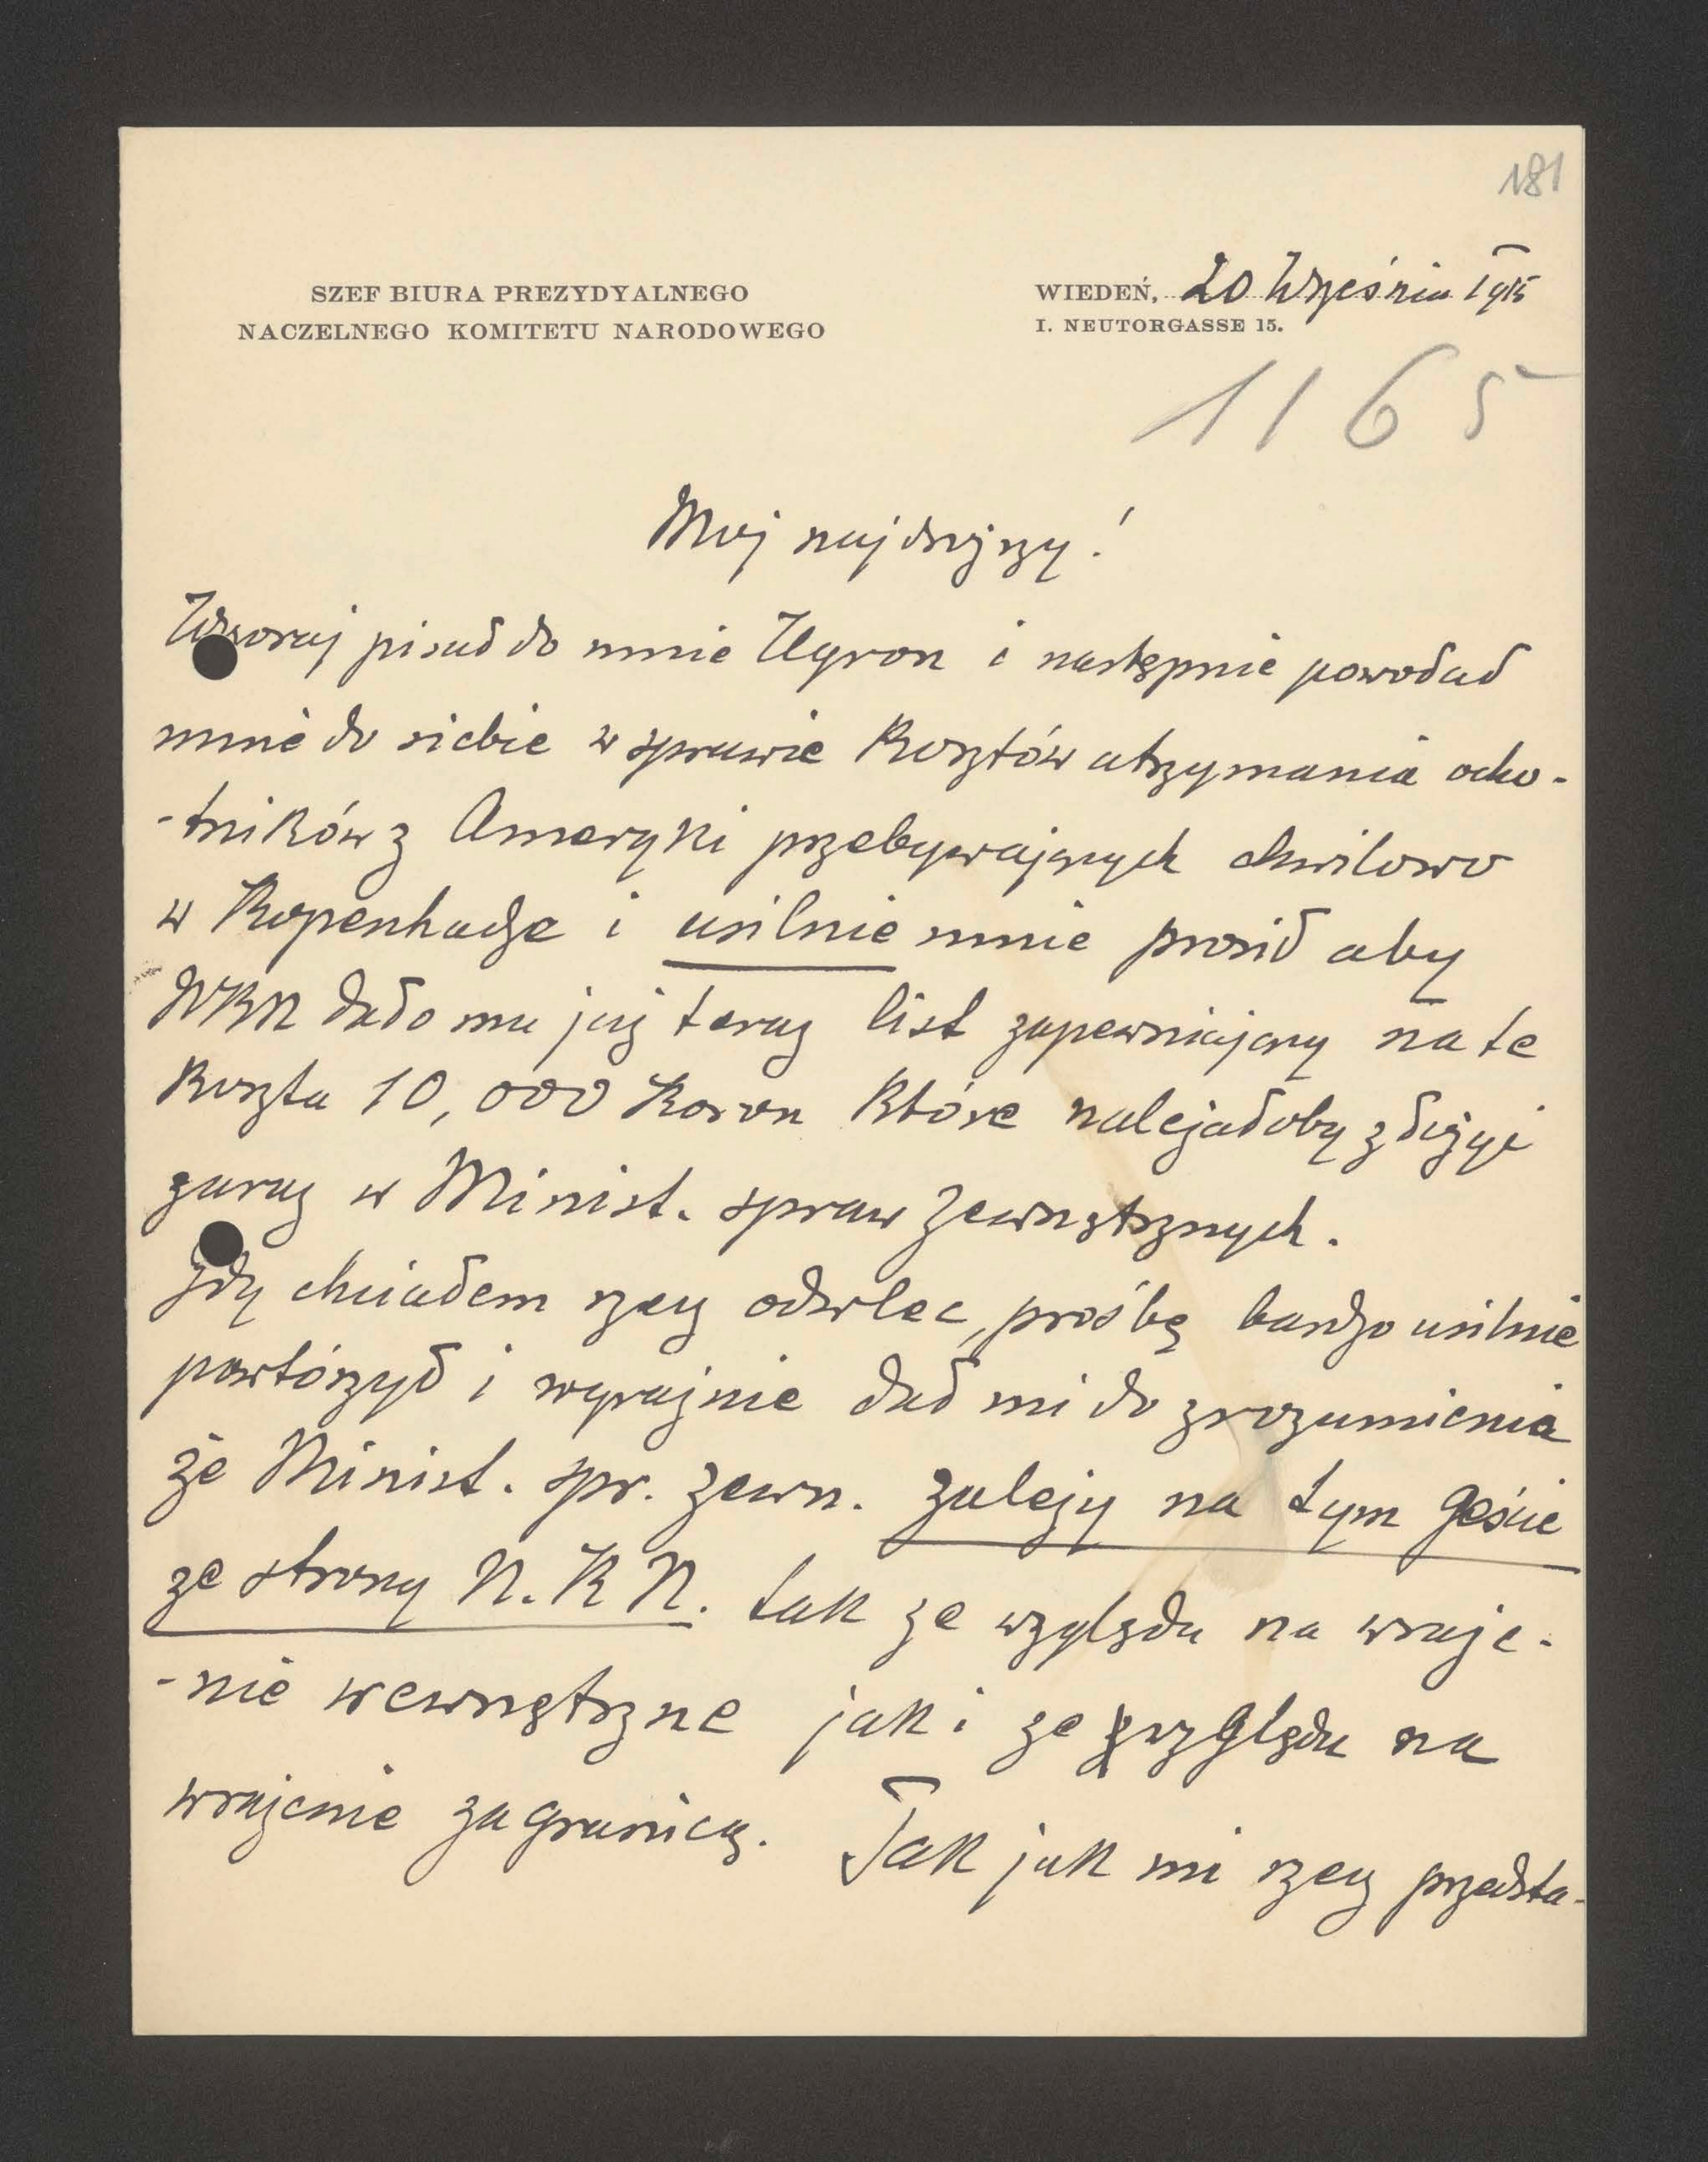 181
SZEF BIURA PREZYDYALNEGO
NACZELNEGO KOMITETU NARODOWEGO
WIEDEŃ, 20 Września 1915
I. NEUTORGASSE 15.
1165
Mój najdroższy!
Wczoraj pisał do mnie Ugron i następnie powołał
mnie do siebie w sprawie kosztów utrzymania ocho-
-tników z Ameryki przebywających chwilowo
w Kopenhadze i usilnie mnie prosił aby
NKN dało mu już teraz list zapewniający na te
koszta 10,000 Koron które należałoby złożyć
zaraz w Minist. spraw zewnętrznych.
Gdy chciałem rzecz odwlec, prośbę bardzo usilnie
powtórzył i wyraźnie dał mi do zrozumienia
że Minist. spr. zewn. zależy na tym geście
ze strony N.K.N. tak ze względu na wraże-
-nie wewnętrzne jak i ze względu na
wrażenie zagranicą. Tak jak mi rzecz przedsta-